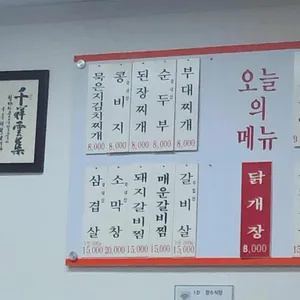 오늘
의
메뉴
묵은지김치찌개
8,000
콩비지
8,000
된장찌개
8,000
순두부
8,000
부대찌개
8,000
삼겹살
15,000
소막창
20,000
돼지갈비찜
15,000
매운갈비찜
15,000
갈비살
15,000
닭개장
8,000